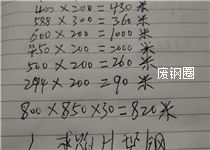 400×200=430米
588×300=360米
600×200=1000米
450×200=2000米
500×200=260米
294×200=90米
废钢圈
800×850×30=820米
H型钢